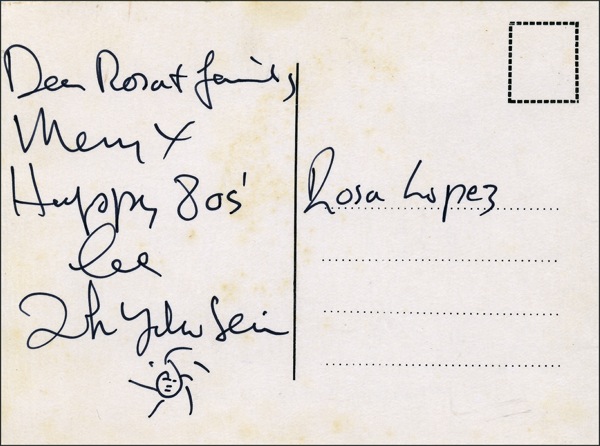 Dear Rosa + family
Merry X
Happy 80s'
love
John Yoko Sean
Rosa Lopez